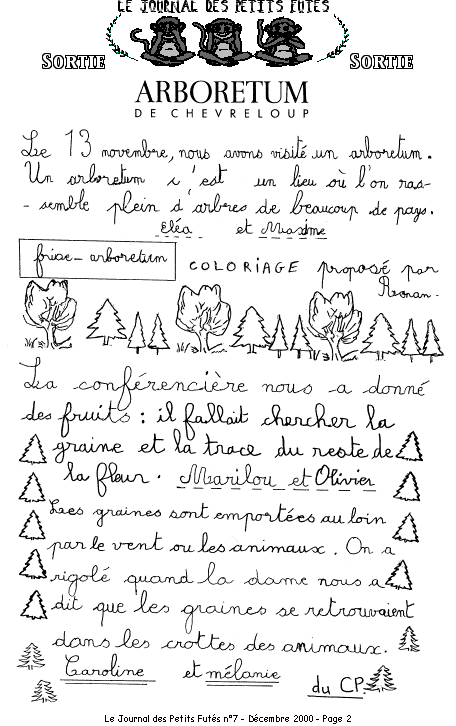 LE JOURNAL DES PETITS FUTÉS
SORTIE SORTIE
ARBORETUM
DE CHEVRELOUP
Le 13 novembre, nous avons visité un arboretum.
Un arboretum c'est un lieu où l'on ras-
- semble plein d'arbres de beaucoup de pays.
Eléa et Maxime
frise - arboretum
COLORIAGE proposé par
Ronan.
La conférencière nous a donné
des fruits : il fallait chercher la
graine et la trace du reste de
la fleur. Marilou et Olivier
Les graines sont emportées au loin
par le vent ou les animaux. On a
rigolé quand la dame nous a
dit que les graines se retrouvaient
dans les crottes des animaux.
Caroline et mélanie
du CP.
Le Journal des Petits Futés n°7 - Décembre 2000 - Page 2